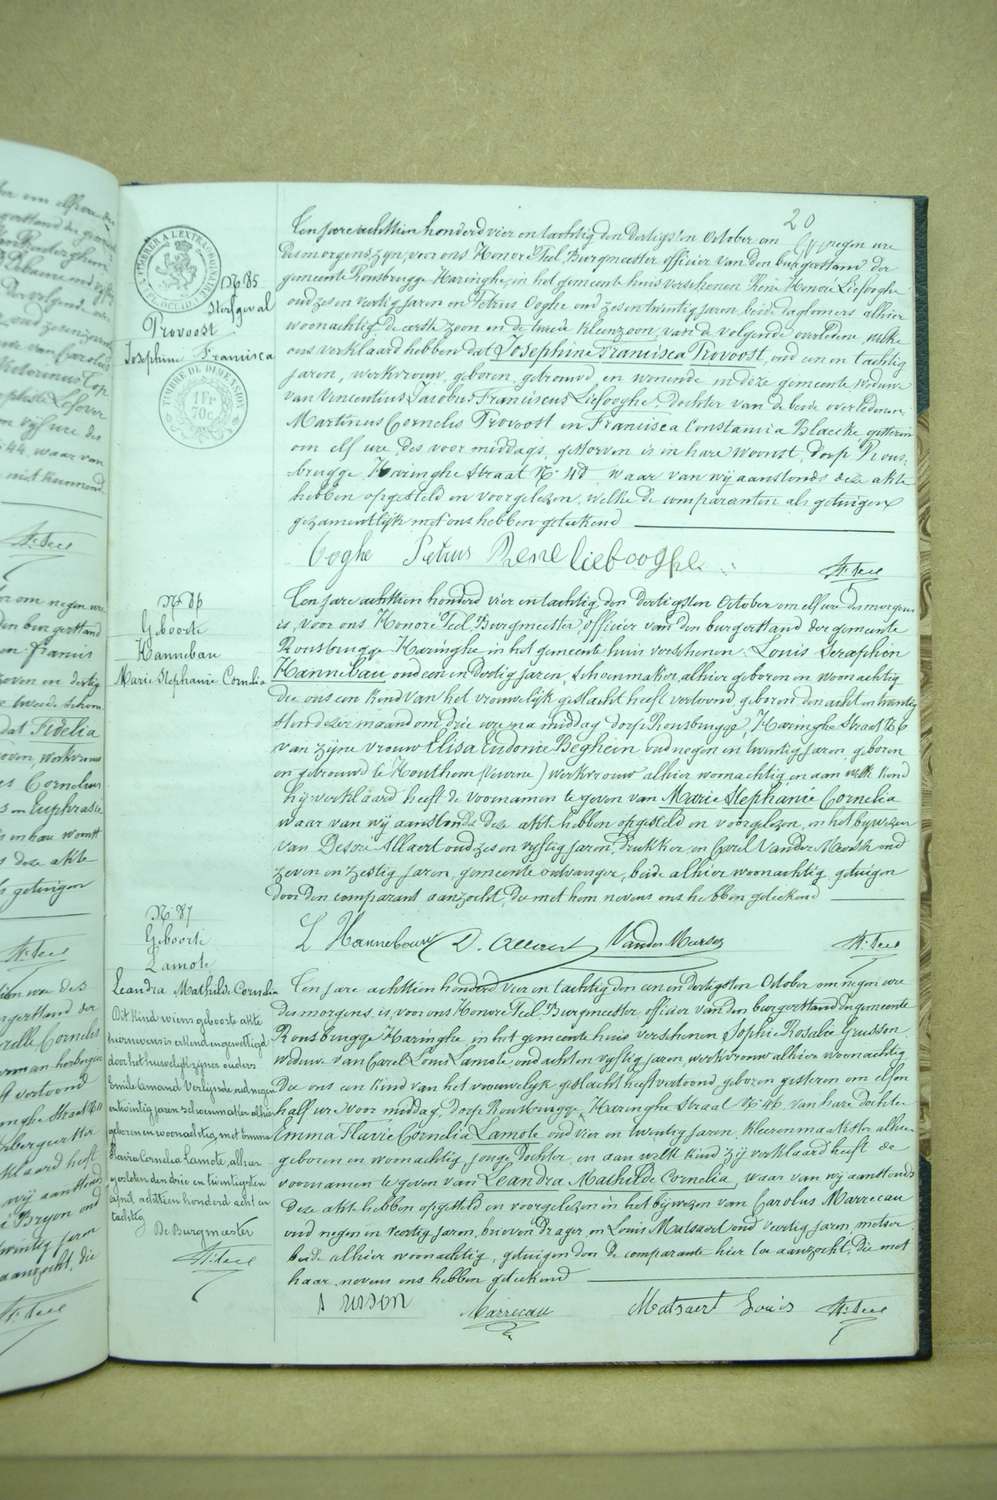 20
N. 85
Sterfgeval
Provoost
Josephine Francisca
TIMBRE DE DIMENSION
1 Fr
70c
Ten jare achttien honderd vier en tachtig den dertigsten October om negen ure
des morgens zyn, voor ons Honoré Feel, Burgmeester officier van den burgerstand der
gemeente Rousbrugge Haringhe, in het gemeente huis verschenen René Honoré Liefooghe
oud zes en veertig jaren en Petrus Ooghe oud zes en twintig jaren, beide taglooners alhier
woonachtig, de eerste zoon en de tweede kleenzoon van de volgende overledene, welke
ons verklaard hebben dat Josephine Francisca Provoost, oud een en tachtig
jaren, werkvrouw, geboren, getrouwd en wonende in deze gemeente weduwe
van Vincentius Jacobus Franciscus Liefooghe, dochter van de beide overledenen
Martinus Cornelis Provoost en Francisca Constantia Blaecke gisteren
om elf ure des voor middags, gestorven is in hare woonst dorp Rous-
brugge Haringhe Straat N. 48 waar van wij aanstonds deze akte
hebben opgesteld en voorgelezen, welke de comparanten als getuigen
gezamentlijk met ons hebben geteekend
Ooghe Petrus René liebooghe H. Feel
N. 86
Geboorte
Hannebau
Marie Stephanie Cornelia
Ten jare achttien honderd vier en tachtig, den dertigsten October om elf ure des morgens
is, voor ons Honoré Feel, Burgmeester, officier van den burgerstand der gemeente
Rousbrugge Haringhe in het gemeente huis verschenen Louis Seraphin
Hannebau oud een en dertig jaren, schoenmaker, alhier geboren en woonachtig
die ons een kind van het vrouwelijk geslacht heeft vertoond geboren den acht en twintig
sten dezer maand om drie ure na middag dorp Rousbrugge, Haringhe Straat N. 6
van zijne vrouw Elisa Eudonie Beghein oud negen en twintig jaren, geboren
en getrouwd te Houthem (Veurne) werkvrouw alhier woonachtig en aan welk kind
hij verklaard heeft de voornamen te geven van Marie Stephanie Cornelia
waar van wij aanstonds deze akte hebben opgesteld en voorgelezen, in het bijwezen
van Desiré Allaert oud zes en vyftig jaren, drukker en Carel Vander Meersch oud
zeven en zestig jaren, gemeente ontvanger, beide alhier woonachtig getuigen
door den comparant aanzocht, die met hem nevens ons hebben geteekend
L Hannebauw D. Allaert Vander Mersch H. Feel
N. 87
Geboorte
Lamote
Leandra Mathilde Cornelia
Dit kind wiens geboorte akte
hiernevens is erkend en gewettigd
door het huwelijk zijner ouders
Emile Amand oud negen
en twintig jaren schoenmaker alhier
geboren en woonachtig, met Emma
Flavie Cornelia Lamote, alhier
gesloten den drie en twintigsten
april achttien honderd acht en
tachtig
De Burgmeester
H. Feel
Ten jare achttien honderd vier en tachtig den een en dertigsten October om negen ure
des morgens is, voor ons Honoré Feel, Burgmeester officier van den burgerstand der gemeente
Rousbrugge Haringhe in het gemeente huis verschenen Sophie Rosalie
weduwe van Carel Louis Lamote, oud acht en vyftig jaren, werkvrouw alhier woonachtig
die ons een kind van het vrouwelijk geslacht heeft vertoond, geboren gisteren om elf en
half ure voor middag, dorp Rousbrugge, Haringhe Straat N. 46 van hare dochter
Emma Flavie Cornelia Lamote oud vier en twintig jaren, kleermaakster alhier
geboren en woonachtig jonge dochter en aan welk kind zij verklaard heeft de
voornamen te geven van Leandra Mathilde Cornelia, waar van wij aanstonds
deze akte hebben opgesteld en voorgelezen in het bijwezen van Carolus Marrecau
oud negen en veertig jaren, brieven drager en Louis Matsaert oud veertig jaren, metser
beide alhier woonachtig, getuigen door de comparante hier toe aanzocht, die met
haar nevens ons hebben geteekend
Marrecau Matsaert Louis H. Feel